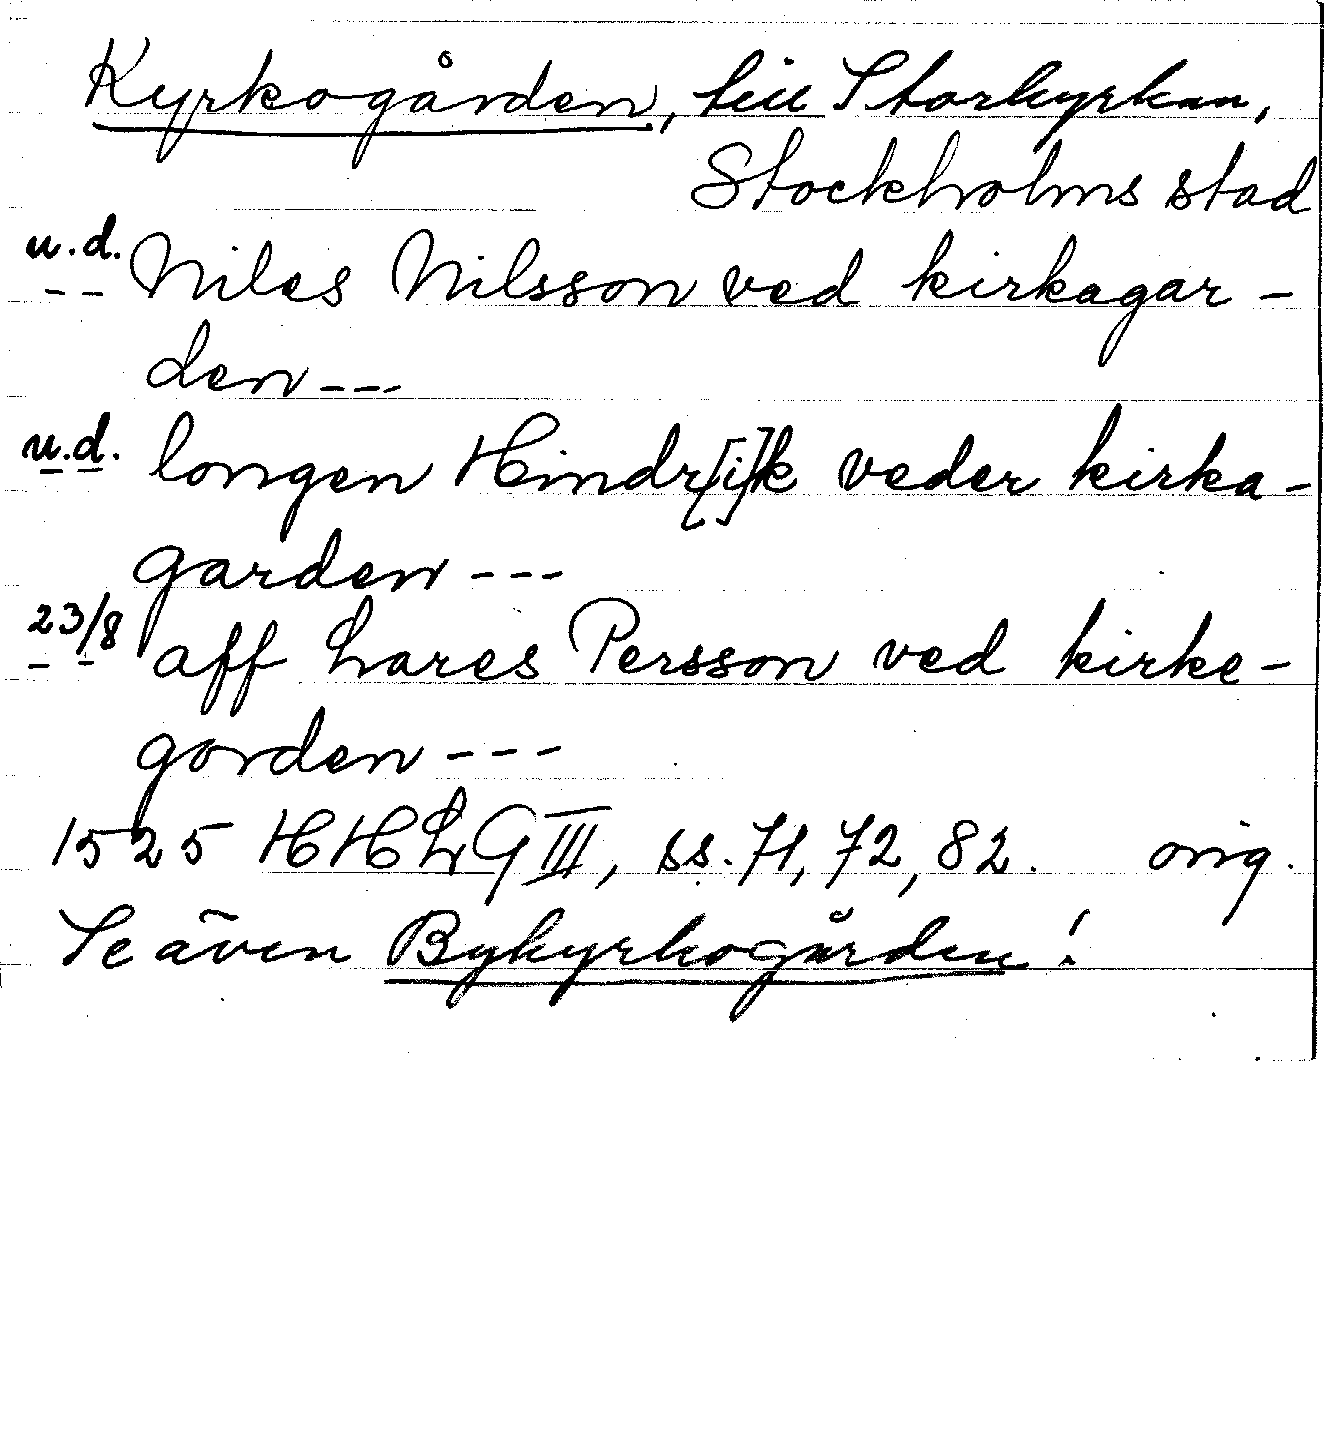 Kyrkogården, till Storkyrkan,
Stockholms stad
u.d. Niles Nilsson ved kirkagar-
-- den---
u.d. longen Hindr[i]k veder kirka-
garden---
23/8 aff Lares Persson ved kirke-
gorden---
1525 HHLG III, ss. 71, 72, 82. orig.
Se även Bykyrkogården!